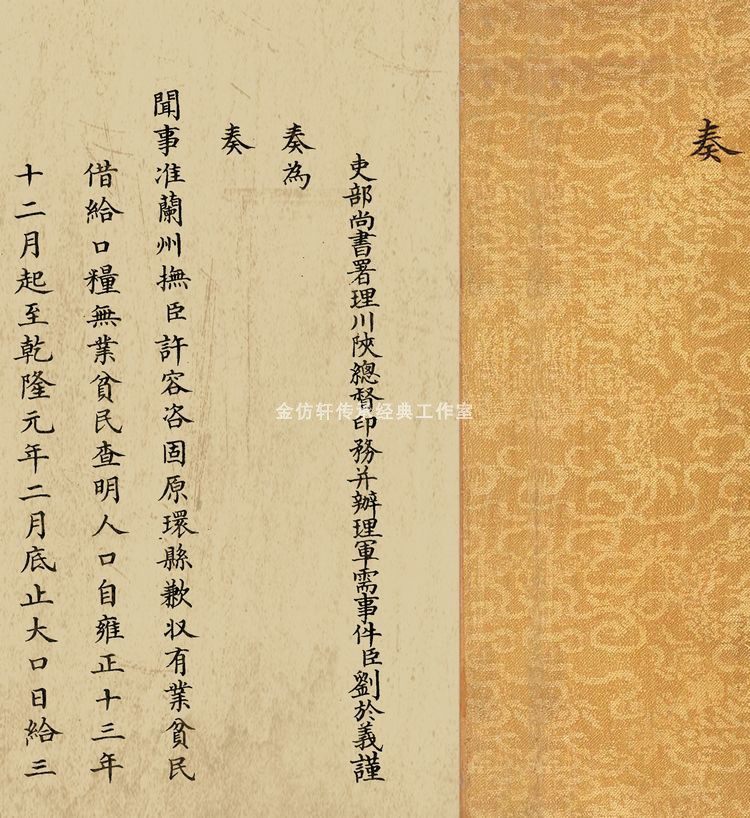 奏
吏部尚書署理川陝總督印務并辦理軍需事件臣劉於義謹
奏為
奏
聞事准蘭州撫臣許容咨固原環縣歉収有業貧民
借給口糧無業貧民查明人口自雍正十三年
十二月起至乾隆元年二月底止大口日給三
金仿轩传承经典工作室